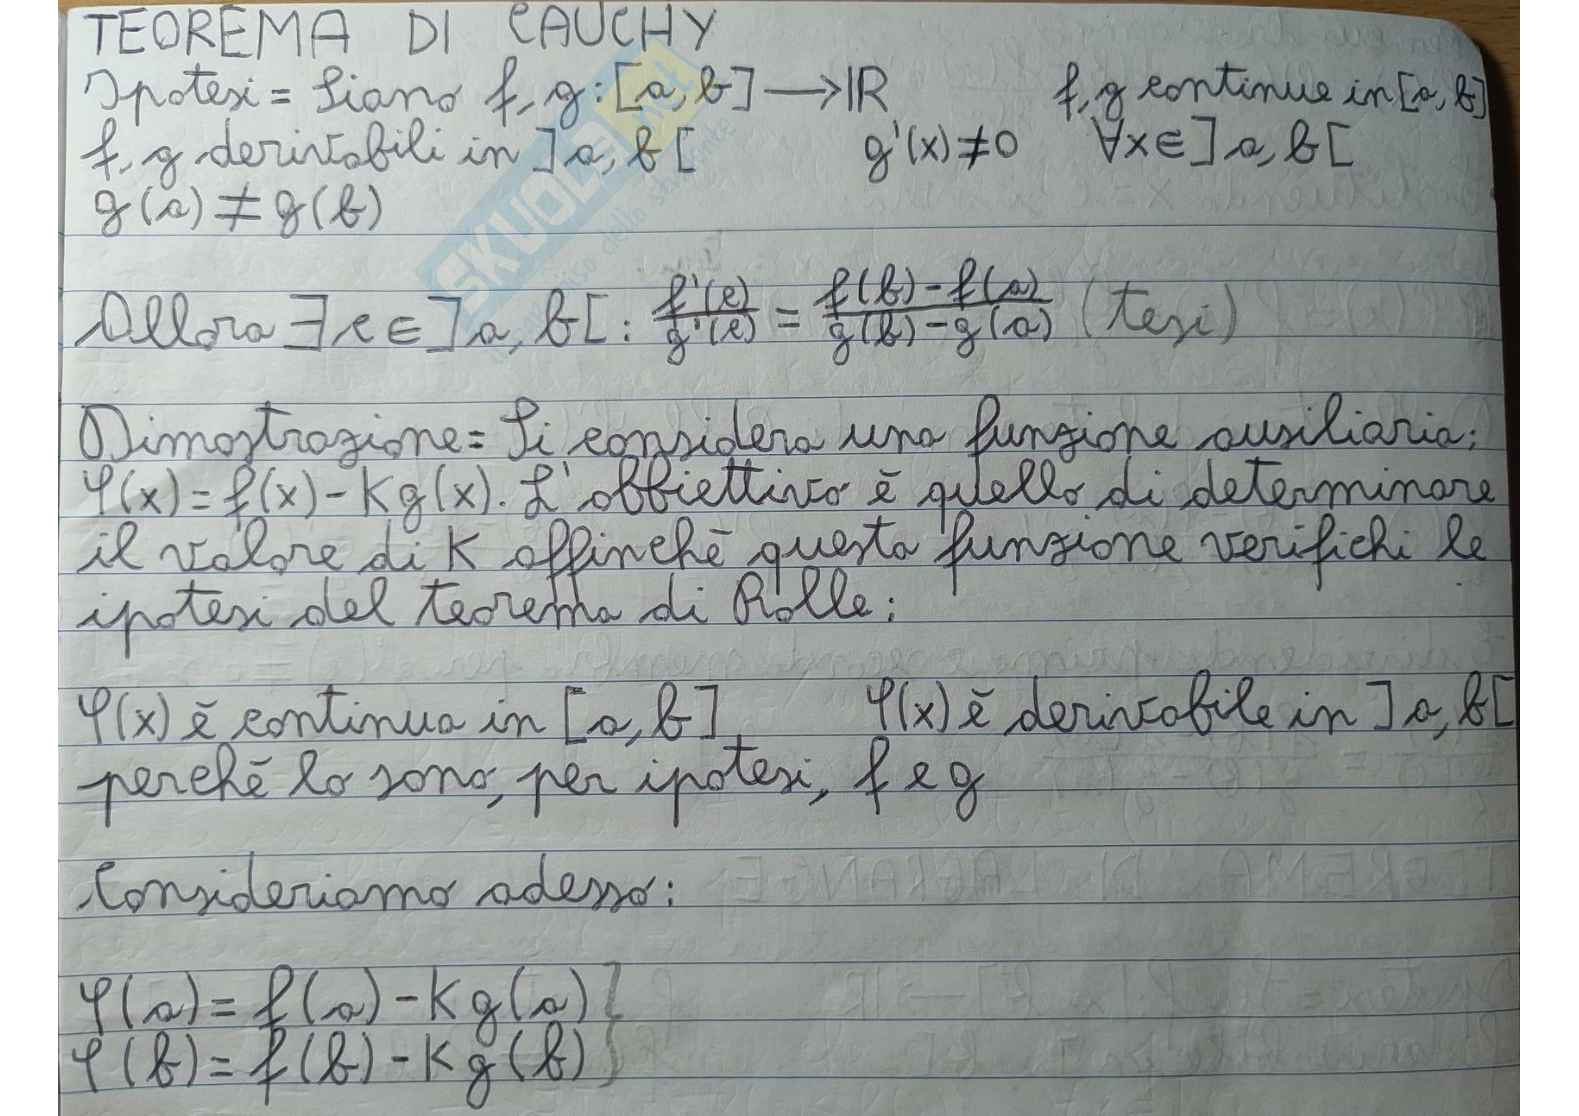 TEOREMA DI CAUCHY
Ipotesi = Siano f, g : [a, b] → ℝ f, g continue in [a, b]
f, g derivabili in ]a, b[ g'(x) ≠ 0 ∀x ∈ ]a, b[
g(a) ≠ g(b)
Allora ∃ c ∈ ]a, b[ : f'(c)/g'(c) = f(b) - f(a)/g(b) - g(a) (tesi)
Dimostrazione = Si considera una funzione ausiliaria:
φ(x) = f(x) - Kg(x). L'obbiettivo è quello di determinare
il valore di K affinchè questa funzione verifichi le
ipotesi del teorema di Rolle:
φ(x) è continua in [a, b] φ(x) è derivabile in ]a, b[
perchè lo sono, per ipotesi, f e g
Consideriamo adesso:
φ(a) = f(a) - Kg(a) }
φ(b) = f(b) - Kg(b) }
SKUOLA.net